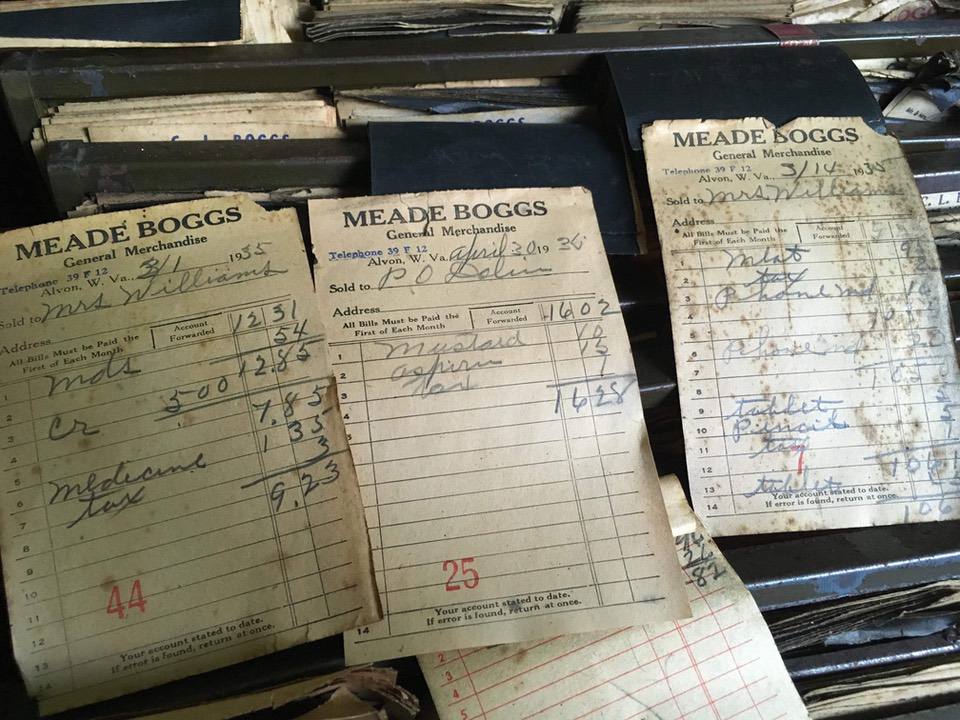 BOGGS
MEADE BOGGS
General Merchandise
Telephone 39 F 12
Alvon, W. Va. 3/1 1935
Sold to Mrs Williams
Address
All Bills Must be Paid the First of Each Month
Account Forwarded
12 31
1 mds 54
12.85
Cr 500
7.85
Medicine 1 35
tax 3
9.23
1
2
3
4
5
6
7
8
9
10
11
12
13
14
44
Your account stated to date.
If error is found, return at once.
MEADE BOGGS
General Merchandise
Telephone 39 F 12
Alvon, W. Va. April 30 19
Sold to P O
Address
All Bills Must be Paid the First of Each Month
Account Forwarded
16 02
1 Mustard 10
2 aspirin 15
tax 1
3 16 28
4
5
6
7
8
9
10
11
25
Your account stated to date.
If error is found, return at once.
14
MEADE BOGGS
General Merchandise
Telephone 39 F 12
Alvon, W. Va. 3/14 1935
Sold to Mrs Williams
Address
All Bills Must be Paid the First of Each Month
Account Forwarded
Meat
2 tax
3 Phone
5
6 Phone
7
9 tablet
10 Pencil
11 tax
12 7
13 tablet
Your account stated to date.
If error is found, return at once.
14
82
2
3
4
5